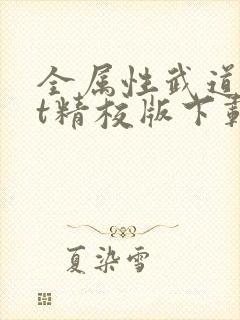 全属性武道
t精校版下载
夏染雪